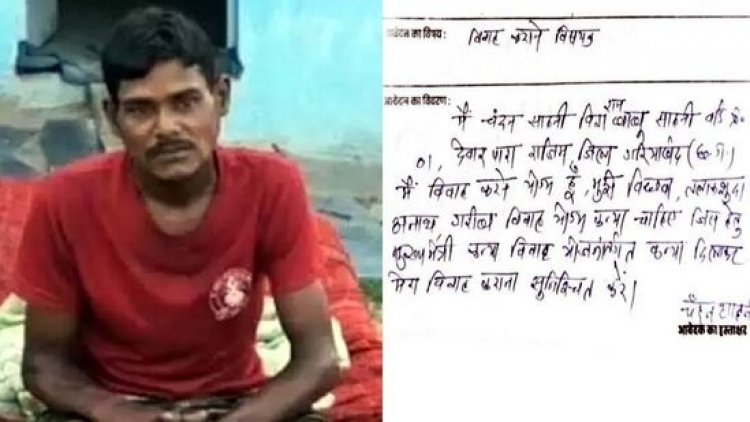 आवेदन का विषय: विवाह कराने विषयक
आवेदन का विवरण:
मैं चंदन साहनी पिता श्याम साहनी वार्ड क्र.
01, देवार पारा राजिम, जिला गरियाबंद (छ.ग.)
मैं विवाह करने योग्य हूँ, मुझे विधवा, तलाकशुदा
अनाथ, गरीब विवाह योग्य कन्या चाहिए जिस हेतु
मुख्यमंत्री कन्या विवाह योजनांर्गत कन्या दिलाकर
मेरा विवाह कराना सुनिश्चित करें।
चंदन साहनी
आवेदक का हस्ताक्षर